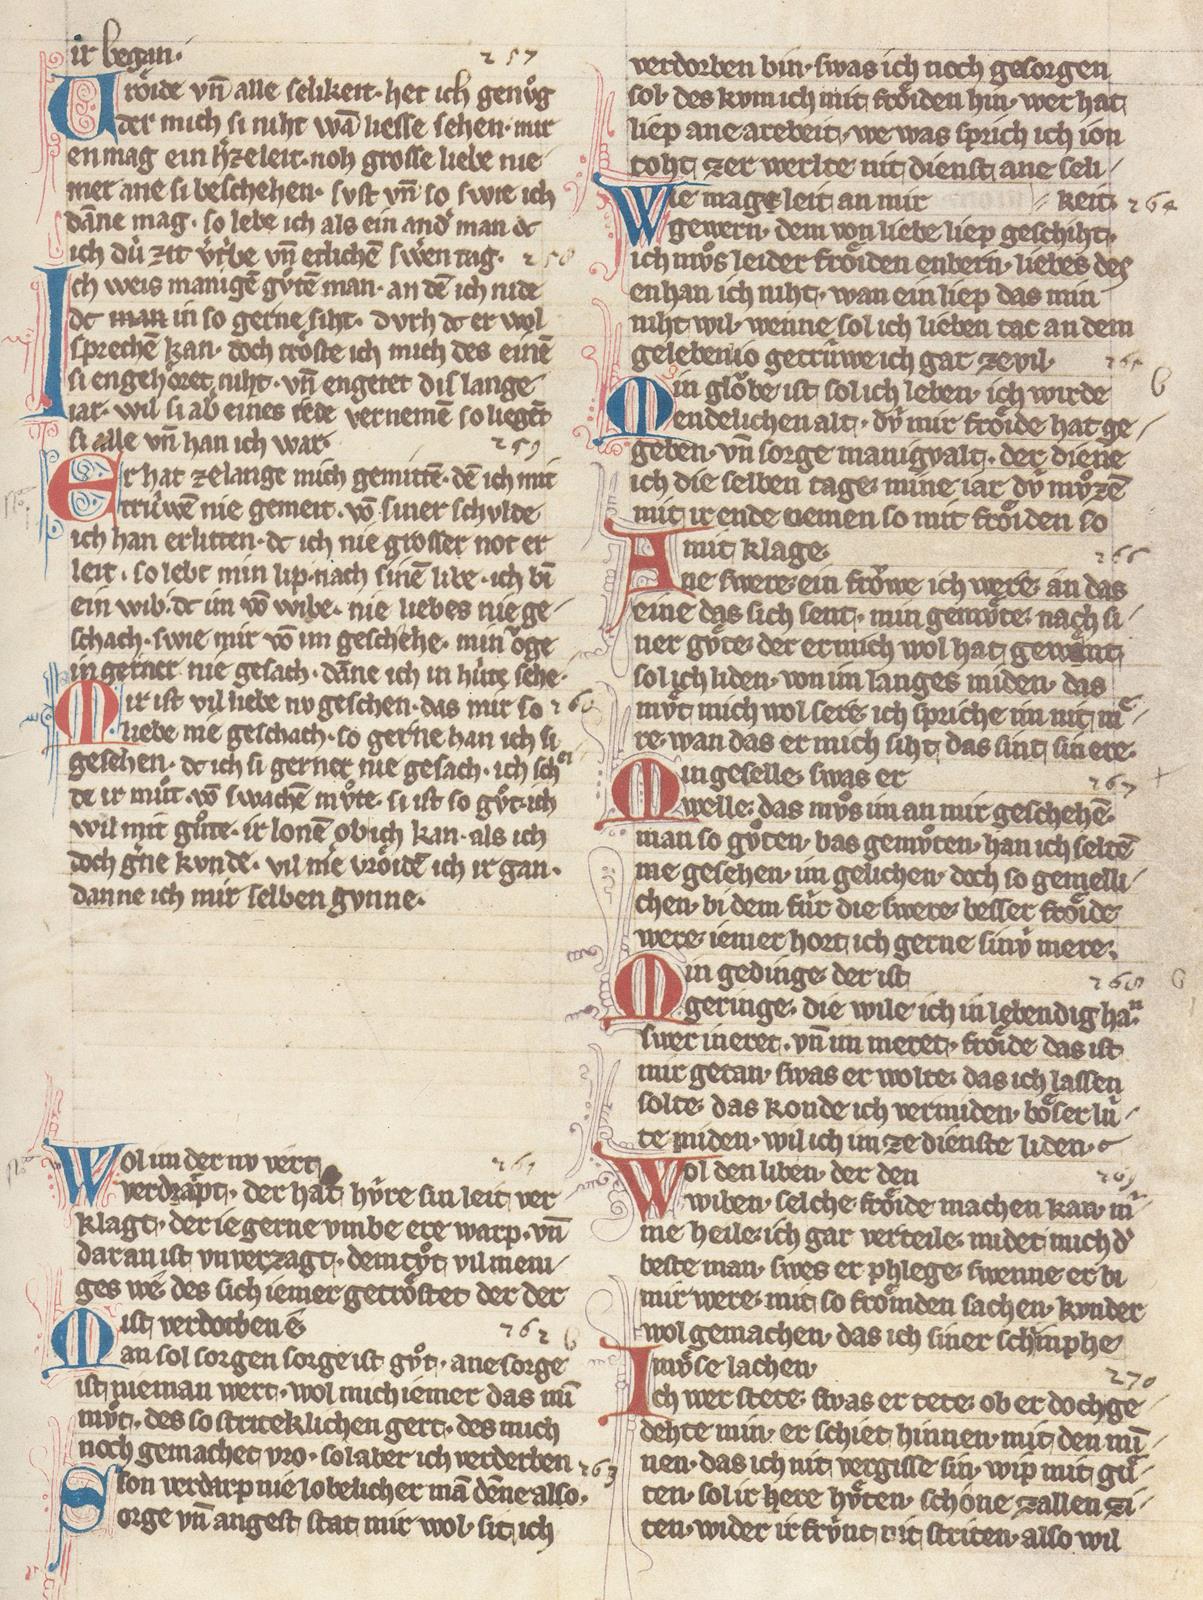 ir began· 257
Vröide vn̄ alle selikeit· het ich genůg
der mich si niht wā liesse sehen· mir
en mag ein h̾zeleit· noh grosse liebe nie
mer ane si beschehen· svst vn̄ so swie ich
dāne mag· so lebe ich als ein and̾ man dc
ich dú zit v̾t̾be vn̄ etlichē swē̾n tag· 258
Ich weis manigē gv̊tē man· an dē ich nide
dc man in so gerne siht· dvrh dc er wol
sprechē kan· doch tröste ich mich des einē
si engehöret niht· vn̄ engetet dis lange
iar· wil si ab̾ eines rede vernemē so liegēt
si alle vn̄ han ich war· 259
Er hat ze lange mich gemittē· dē ich mit
trúwē nie gemeit· vō siner schvlde
ich han erlitten· dc ich nie grosser not er
leit· so lebt min lip· nach sinē libe· ich bī
ein wib· dc im vō wibe· nie liebes nie ge
schach· swie mir vō im geschehe· min ŏge
in gerner nie gesach· dāne ich in húte sehe·
Mir ist vil liebe nv geschen· das mir so 260
liebe nie geschach· so gerne han ich si
gesehen· dc ich si gerner nie gesach· ich schei
de ir můt· vō swachē mv̊te· si ist so gv̊t· ich
wil mit gůte· ir lonē ob ich kan· als ich
doch g̾ne kvnde· vil mē vröidē ich ir gan·
danne ich mir selben gvnne·
Wol im der nv vert 261
verdarpt· der hat hv́re sin leit ver
klagt· der ie gerne vmbe ere warp· vn̄
dar an ist vnverzagt· dem tv̊t vil meni
ges we· des sich iemer getröstet der der
ist verdorben e 262
Man sol sorgen sorge ist gv̊t· ane sorge
ist nieman wert· wol mich iemer das mī
mv̊t· des so stricteklichen gert· des mich
noch gemachet vro· sol aber ich verderben 263
son verdarp nie lobelicher mā dēne also·
Sorge vn̄ angest stat mir wol· sit ich
verdorben bin· swas ich noch gesorgen
sol· des kvm ich mit fröiden hin· wer hat
liep ane arebeit· we was sprich ich ion
toht zer werlte nit dienst ane seli
keit· 264
Wie mag leit an mir
gewern· dem von liebe liep geschiht·
ich mv̊s leider fröiden enbern· liebes des
enhan ich niht· wan ein liep das min
niht wil· wenne sol ich lieben tac an dem
geleben io getrúwe ich gar ze vil· 265
Min glŏbe ist sol ich leben· ich wirde
endelichen alt· dv́ mir fröide hat ge
geben· vn̄ sorge manigvalt· der diene
ich die selben tage· mine iar dv́ mv̊zē
mit ir ende nemen so mit fröiden so
mit klage· 266
Ane swere· ein frŏwe ich were· an das
eine das sich sent· min gemv̊te· nach si
ner gv̊te· der er mich wol hat gewent
sol ich liden· von im langes miden· das
mv̊t mich wol sere· ich spriche im nit me
re· wan das er mich siht· das sint sin ere·
Min geselle· swas er 267
welle· das mv̊s im an mir geschehē·
man so gv̊ten· bas gemv̊ten· han ich seltē
me gesehen· im gelichen· doch so gemelli
chen· bi dem fúr die swere· besser fröide
were· iemer hort ich gerne sinv́ mere·
Min gedinge· der ist 268
geringe· die wile ich in lebendig han
swer in eret· vn̄ im meret· fröide das ist
mir getan· swas er wolte· das ich lassen
solte· das konde ich vermiden· böser lú
te niden· wil ich im ze dienste liden·
Wol den liben· der den 269
wiben· selche fröide machen kan· mi
me heile· ich gar verteile· midet mich d̾
beste man· swes er phlege· swenne er bi
mir were· mit so frömden sachen· kvnder
wol gemachen· das ich siner schimphe
mv̊se lachen· 270
Ich wer stete· swas er tete· ob er doch ge
dehte min· er schiet hinnen· mit den mī
nen· das ich nit vergisse sin· wip mit gů
ten· sol ir here hv̊ten· schone zallen zi
ten· wider ir frv́nt nit striten· also wil